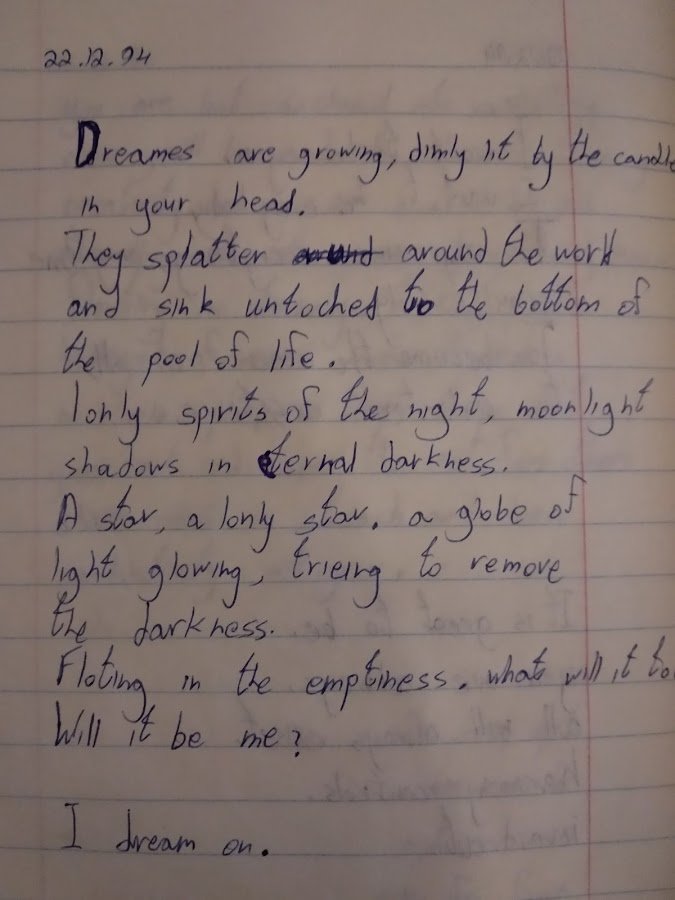 22.12.94
Dreames are growing, dimly lit by the candle
in your head.
They splatter around the world
and sink untoched to the bottom of
the pool of life.
lonly spirits of the night, moonlight
shadows in eternal darkness.
A star, a lonly star. a globe of
light glowing, trieing to remove
the darkness.
Floting in the emptiness. whats will it to
Will it be me?
I dream on.